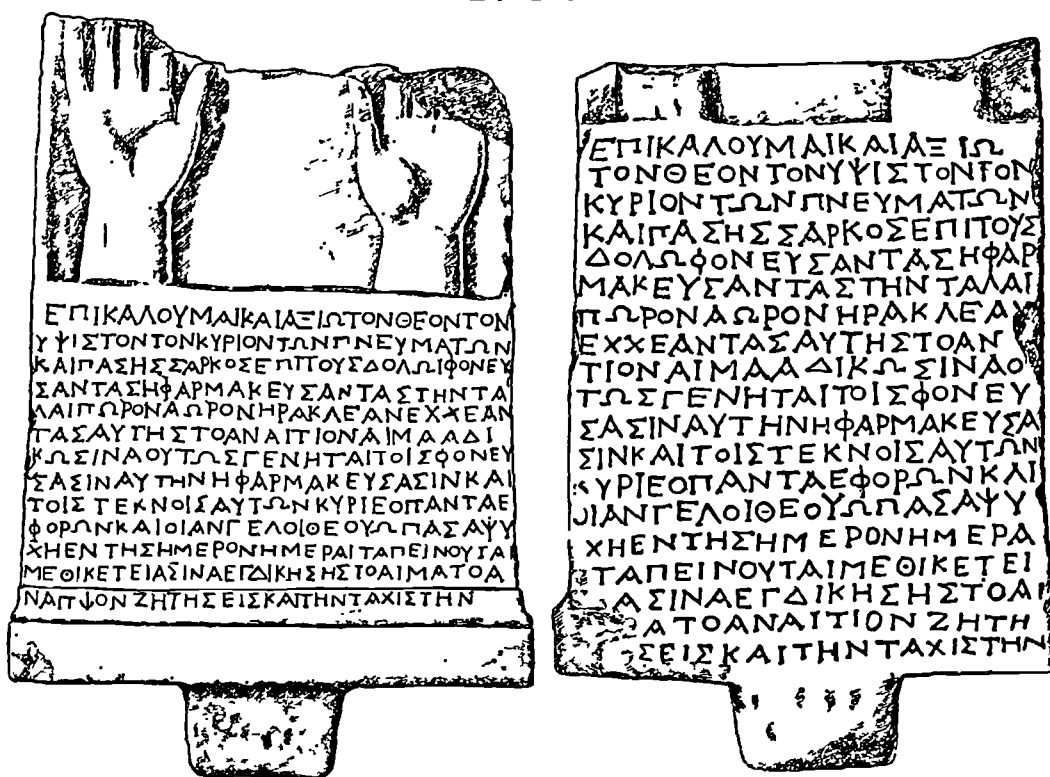 ΕΠΙΚΑΛΟΥΜΑΙΚΑΙΑΞΙΩΤΟΝΘΕΟΝΤΟΝ
ΥΨΙΣΤΟΝΤΟΝΚΥΡΙΟΝΤΩΝΠΝΕΥΜΑΤΩΝ
ΚΑΙΠΑΣΗΣΣΑΡΚΟΣΕΠΙΤΟΥΣΔΟΛΩΙΦΟΝΕΥ
ΣΑΝΤΑΣΗΦΑΡΜΑΚΕΥΣΑΝΤΑΣΤΗΝΤΑ
ΛΑΙΠΩΡΟΝΑΩΡΟΝΗΡΑΚΛΕΑΝΕΧΧΕΑΝ
ΤΑΣΑΥΤΗΣΤΟΑΝΑΙΤΙΟΝΑΙΜΑΑΔΙ
ΚΩΣΙΝΑΟΥΤΩΣΓΕΝΗΤΑΙΤΟΙΣΦΟΝΕΥ
ΣΑΣΙΝΑΥΤΗΝΗΦΑΡΜΑΚΕΥΣΑΣΙΝΚΑΙ
ΤΟΙΣΤΕΚΝΟΙΣΑΥΤΩΝΚΥΡΙΕΟΠΑΝΤΑΕ
ΦΟΡΩΝΚΑΙΟΙΑΝΓΕΛΟΙΘΕΟΥΩΠΑΣΑΨΥ
ΧΗΕΝΤΗΣΗΜΕΡΟΝΗΜΕΡΑΙΤΑΠΕΙΝΟΥΤΑΙ
ΜΕΘΙΚΕΤΕΙΑΣΙΝΑΕΓΔΙΚΗΣΗΣΤΟΑΙΜΑΤΟΑ
ΝΑΙΤΙΟΝΖΗΤΗΣΕΙΣΚΑΙΤΗΝΤΑΧΙΣΤΗΝ
ΕΠΙΚΑΛΟΥΜΑΙΚΑΙΑΞΙΩ
ΤΟΝΘΕΟΝΤΟΝΥΨΙΣΤΟΝΤΟΝ
ΚΥΡΙΟΝΤΩΝΠΝΕΥΜΑΤΩΝ
ΚΑΙΠΑΣΗΣΣΑΡΚΟΣΕΠΙΤΟΥΣ
ΔΟΛΩΦΟΝΕΥΣΑΝΤΑΣΗΦΑΡ
ΜΑΚΕΥΣΑΝΤΑΣΤΗΝΤΑΛΑΙ
ΠΩΡΟΝΑΩΡΟΝΗΡΑΚΛΕΑΝ
ΕΧΧΕΑΝΤΑΣΑΥΤΗΣΤΟΑΝ
ΤΙΟΝΑΙΜΑΑΔΙΚΩΣΙΝΑΟ
ΤΩΣΓΕΝΗΤΑΙΤΟΙΣΦΟΝΕΥ
ΣΑΣΙΝΑΥΤΗΝΗΦΑΡΜΑΚΕΥΣΑ
ΣΙΝΚΑΙΤΟΙΣΤΕΚΝΟΙΣΑΥΤΩΝ
ΚΥΡΙΕΟΠΑΝΤΑΕΦΟΡΩΝΚΑΙ
ΟΙΑΝΓΕΛΟΙΘΕΟΥΩΠΑΣΑΨΥ
ΧΗΕΝΤΗΣΗΜΕΡΟΝΗΜΕΡΑ
ΤΑΠΕΙΝΟΥΤΑΙΜΕΘΙΚΕΤΕΙ
ΑΣΙΝΑΕΓΔΙΚΗΣΗΣΤΟΑΙ
ΑΤΟΑΝΑΙΤΙΟΝΖΗΤΗ
ΣΕΙΣΚΑΙΤΗΝΤΑΧΙΣΤΗΝ